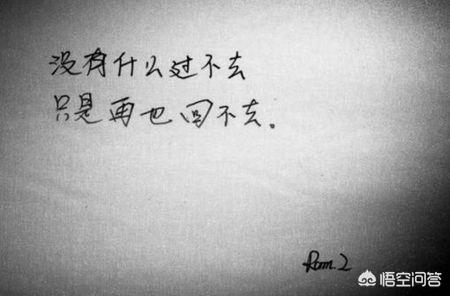 没有什么过不去
只是再也回不去。
悟空问答